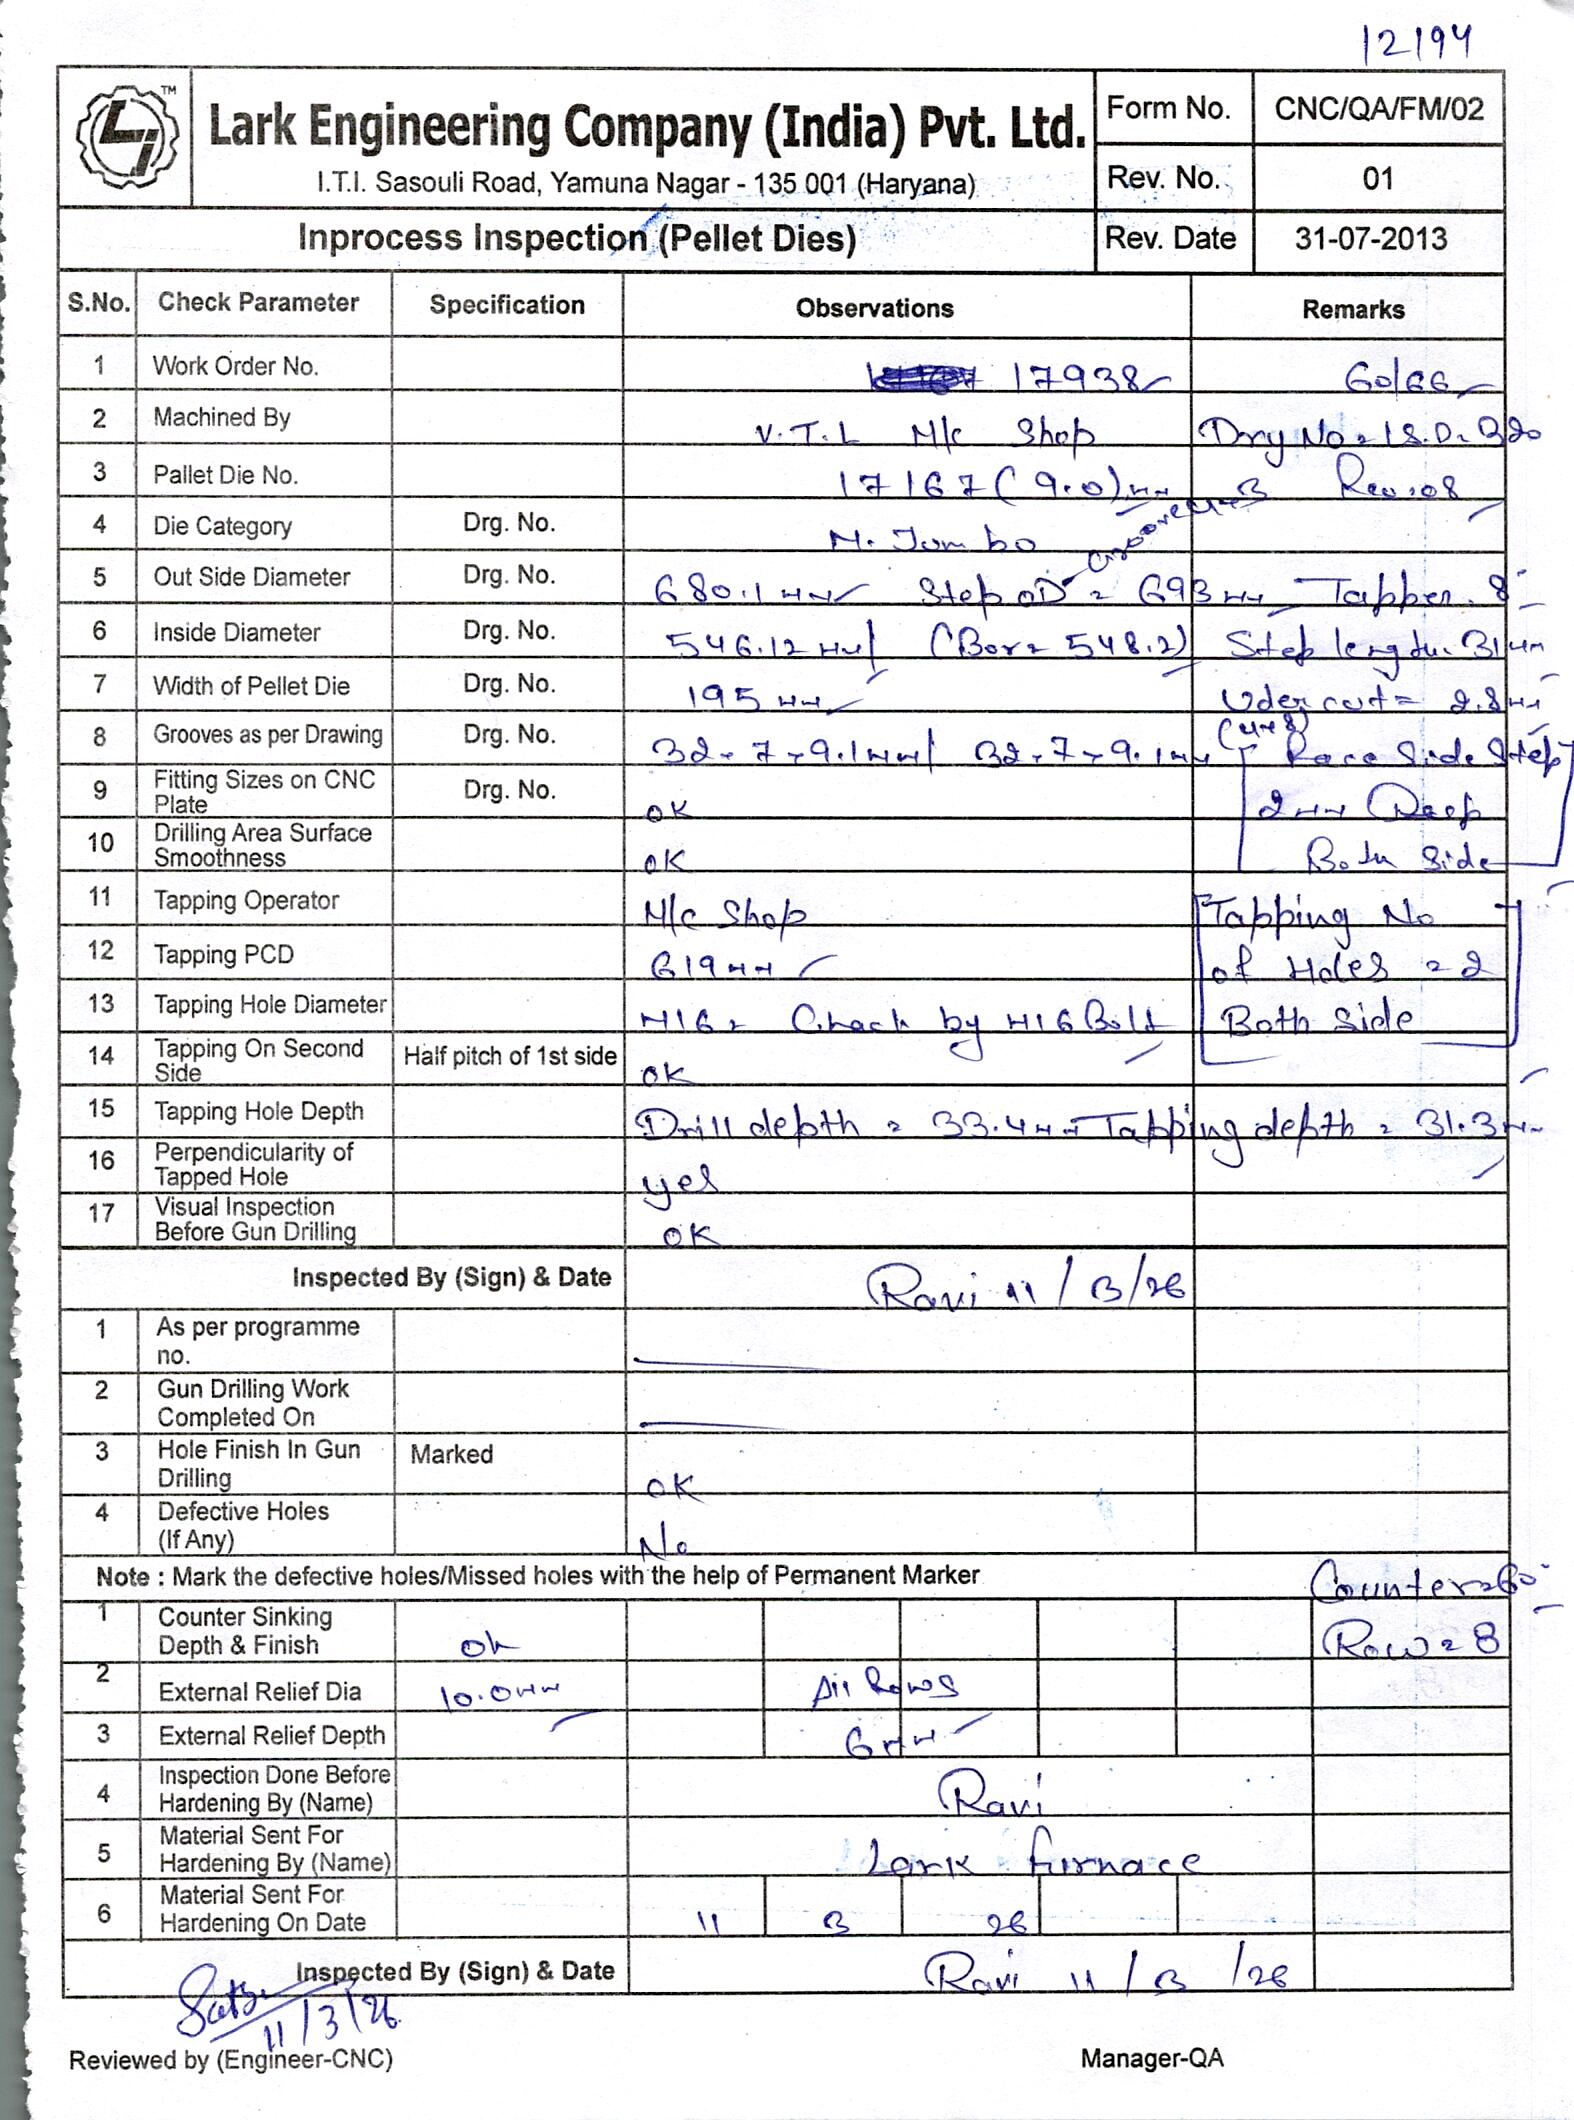 12194
TM
Lark Engineering Company (India) Pvt. Ltd.
I.T.I. Sasouli Road, Yamuna Nagar - 135 001 (Haryana)
Form No. CNC/QA/FM/02
Rev. No. 01
Inprocess Inspection (Pellet Dies)
Rev. Date 31-07-2013
S.No. Check Parameter Specification Observations Remarks
1 Work Order No. 17938 60/66
2 Machined By V.T.L M/c Shop Drg No = I.S.D. 320
3 Pallet Die No. 17167 (9.0)mm Rev: 08
4 Die Category Drg. No. M. Jumbo
5 Out Side Diameter Drg. No. 680.1 mm Step OD = 693 mm Tapper. 8
6 Inside Diameter Drg. No. 546.12 mm (Bor= 548.2) Step length. 31 mm
7 Width of Pellet Die Drg. No. 195 mm Uder cut = 2.8 mm
8 Grooves as per Drawing Drg. No. 32-7-9.1mm/ 32-7-9.1mm Race Side Step
9 Fitting Sizes on CNC Plate Drg. No. OK 2mm Deep
10 Drilling Area Surface Smoothness OK Both Side
11 Tapping Operator M/c Shop Tapping No
12 Tapping PCD 619mm of Holes = 2
13 Tapping Hole Diameter M16 = Check by M16 Bolt Both Side
14 Tapping On Second Side Half pitch of 1st side OK
15 Tapping Hole Depth Drill depth = 33.4mm Tapping depth = 31.3mm
16 Perpendicularity of Tapped Hole yes
17 Visual Inspection Before Gun Drilling OK
Inspected By (Sign) & Date Ravi 11/3/26
1 As per programme no.
2 Gun Drilling Work Completed On
3 Hole Finish In Gun Drilling Marked OK
4 Defective Holes (If Any) No
Note : Mark the defective holes/Missed holes with the help of Permanent Marker
Counter=60
1 Counter Sinking Depth & Finish Ok Row=8
2 External Relief Dia 10.0mm All Rows
3 External Relief Depth 6mm
4 Inspection Done Before Hardening By (Name) Ravi
5 Material Sent For Hardening By (Name) Lark furnace
6 Material Sent For Hardening On Date 11 3 26
Inspected By (Sign) & Date Ravi 11/3/26
11/3/26
Reviewed by (Engineer-CNC) Manager-QA